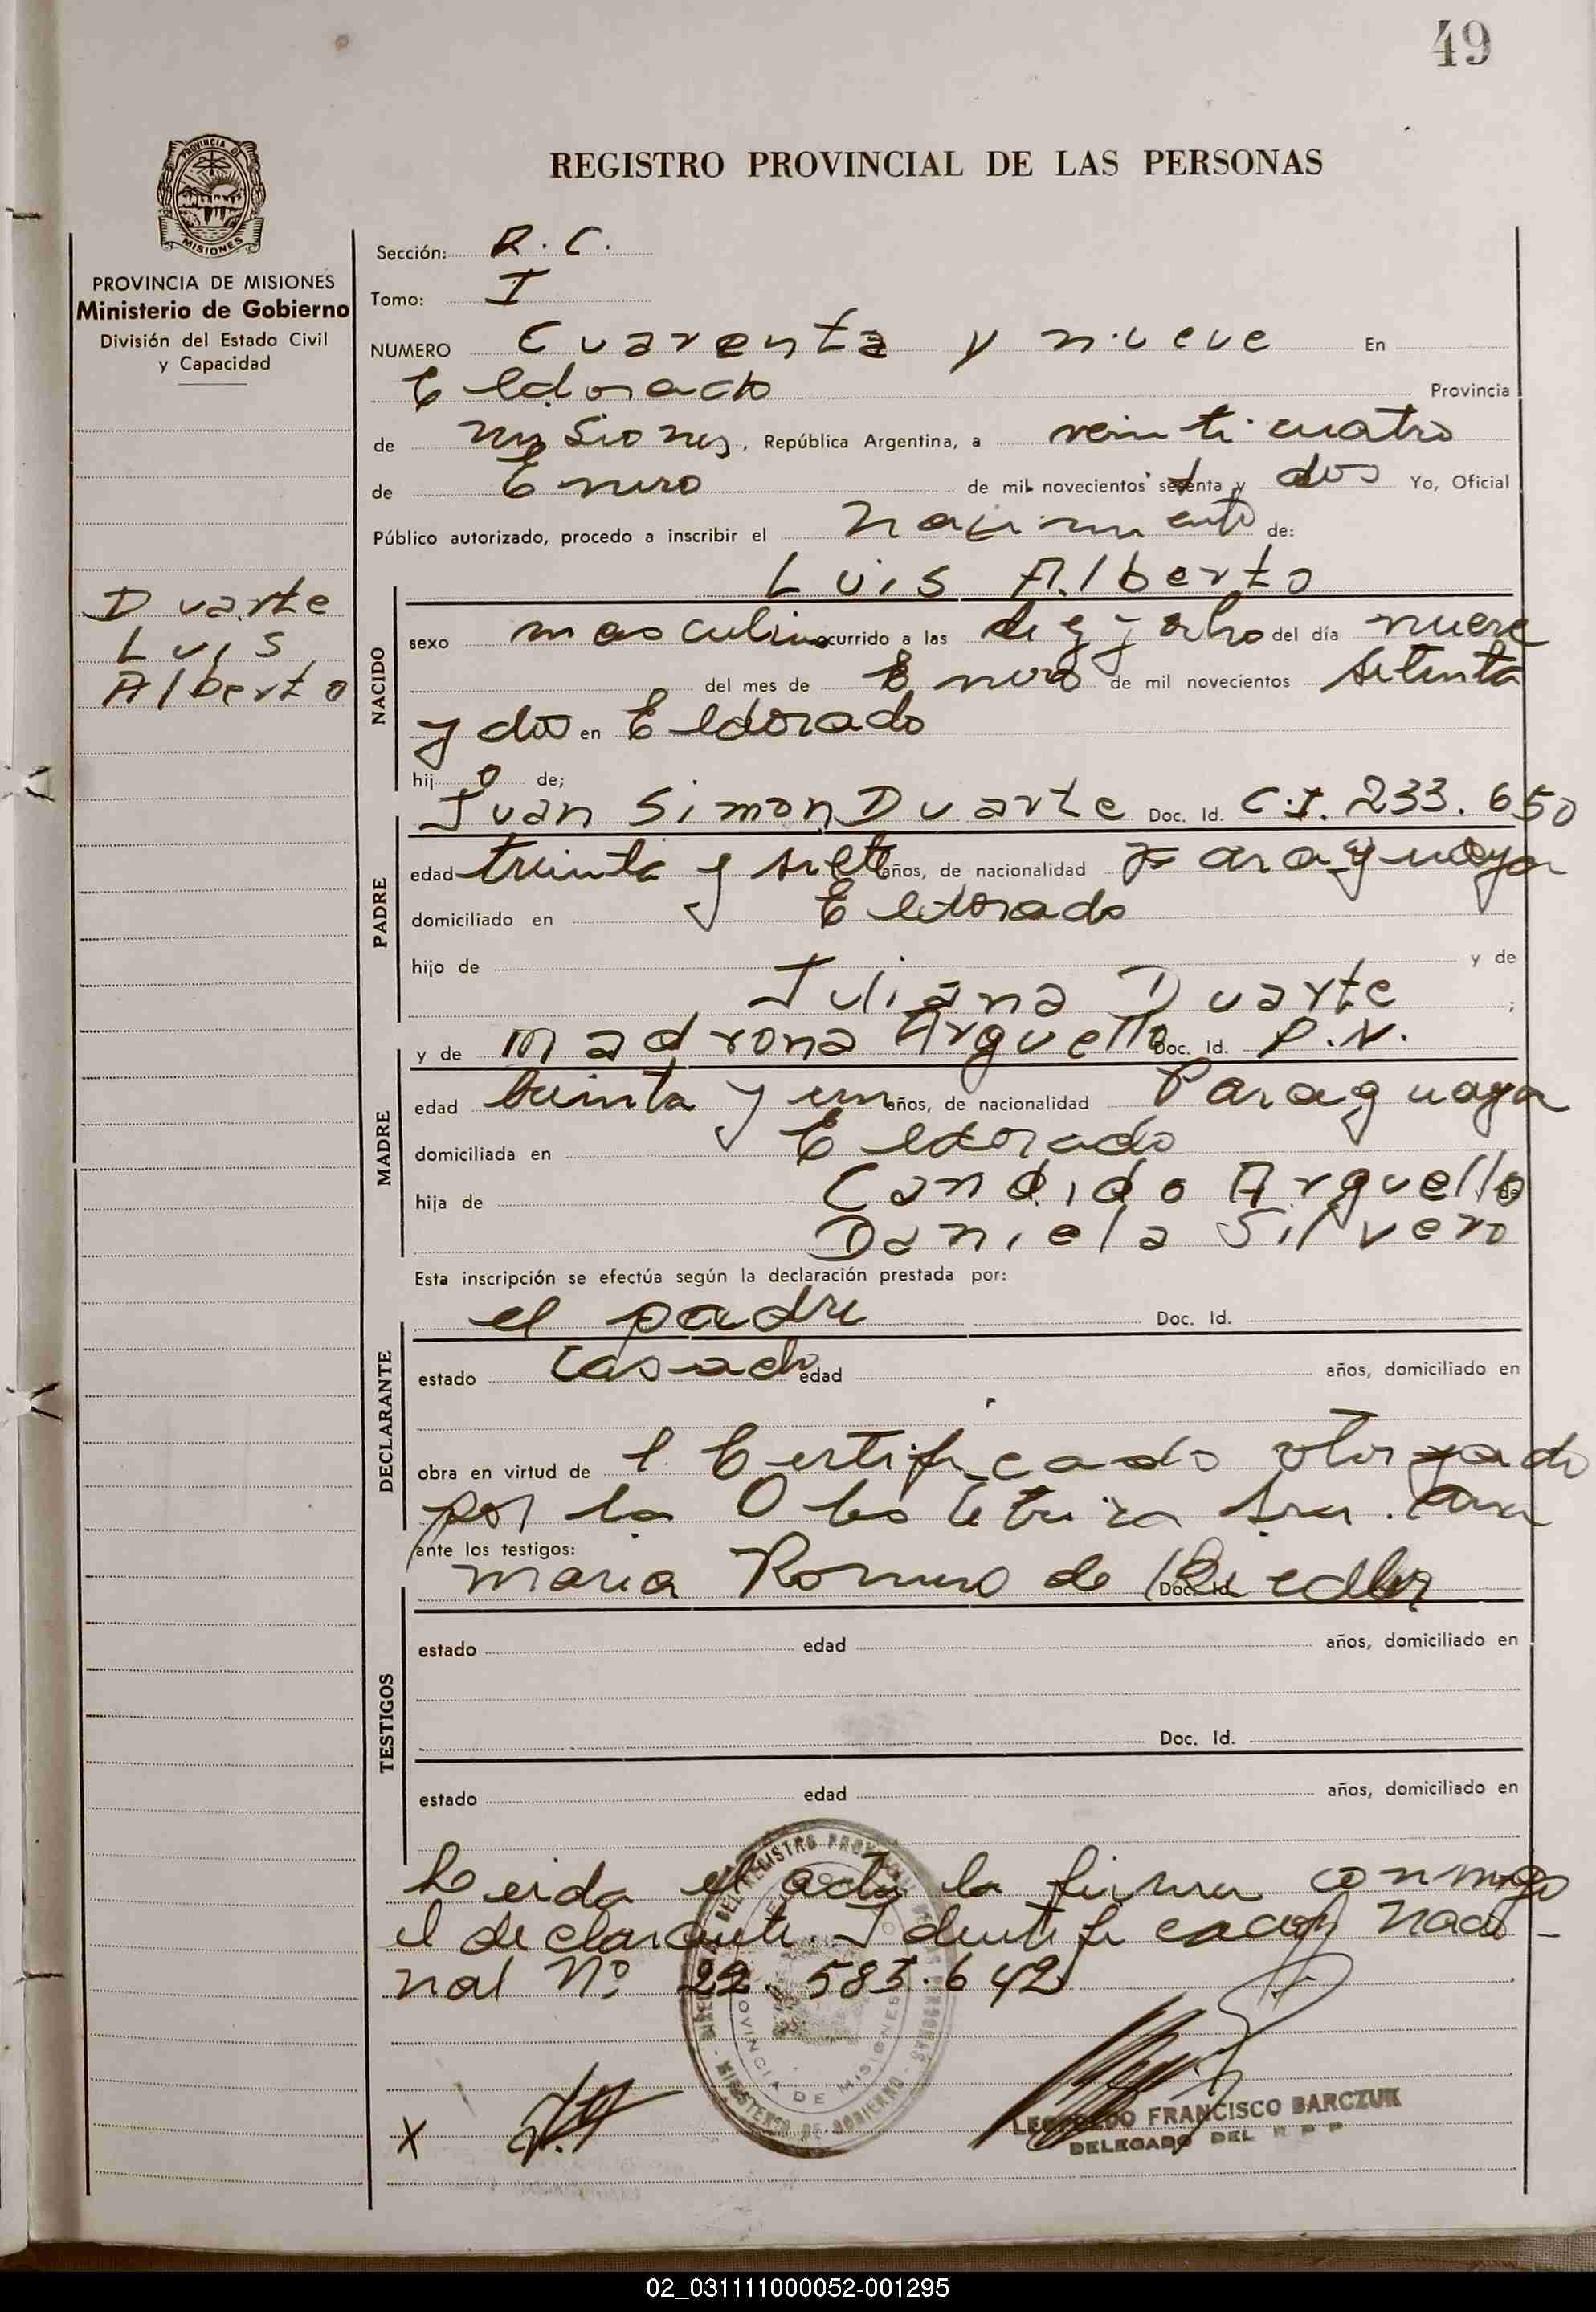 49
PROVINCIA DE
MISIONES
REGISTRO PROVINCIAL DE LAS PERSONAS
PROVINCIA DE MISIONES
Ministerio de Gobierno
División del Estado Civil
y Capacidad
Duarte
Luis
Alberto
Sección: R. C.
Tomo: I
NUMERO Cuarenta y nueve En
Eldorado Provincia
de Misiones, República Argentina, a veinticuatro
de Enero de mil novecientos setenta y dos Yo, Oficial
Público autorizado, procedo a inscribir el nacimiento de:
Luis Alberto
NACIDO
sexo masculino ocurrido a las diez y ocho del día nueve
del mes de Enero de mil novecientos setenta
y dos en Eldorado
hij o de;
Juan Simon Duarte Doc. Id. C.I. 233.650
PADRE
edad treinta y siete años, de nacionalidad Paraguaya
domiciliado en Eldorado
hijo de y de
Juliana Duarte ;
y de Madrona Arguello Doc. Id. P.N.
MADRE
edad treinta y un años, de nacionalidad Paraguaya
domiciliada en Eldorado
hija de Candido Arguello de
Daniela Silvero
Esta inscripción se efectúa según la declaración prestada por:
el padre Doc. Id.
DECLARANTE
estado casado edad años, domiciliado en
obra en virtud de l Certificado otorgado
por la Obstetriza Sra. Ana
ante los testigos:
Maria Romero de Doc. Id.
TESTIGOS
estado edad años, domiciliado en
Doc. Id.
estado edad años, domiciliado en
Leida el acta la firma conmigo
el declarante. Identificacion Nacio-
nal Nº 22.583.642
DEL REGISTRO PROVINCIAL DE LAS PERSONAS
PROVINCIA DE MISIONES
MINISTERIO DE GOBIERNO
X
LEOPOLDO FRANCISCO BARCZUK
DELEGADO DEL R P P
02_031111000052-001295